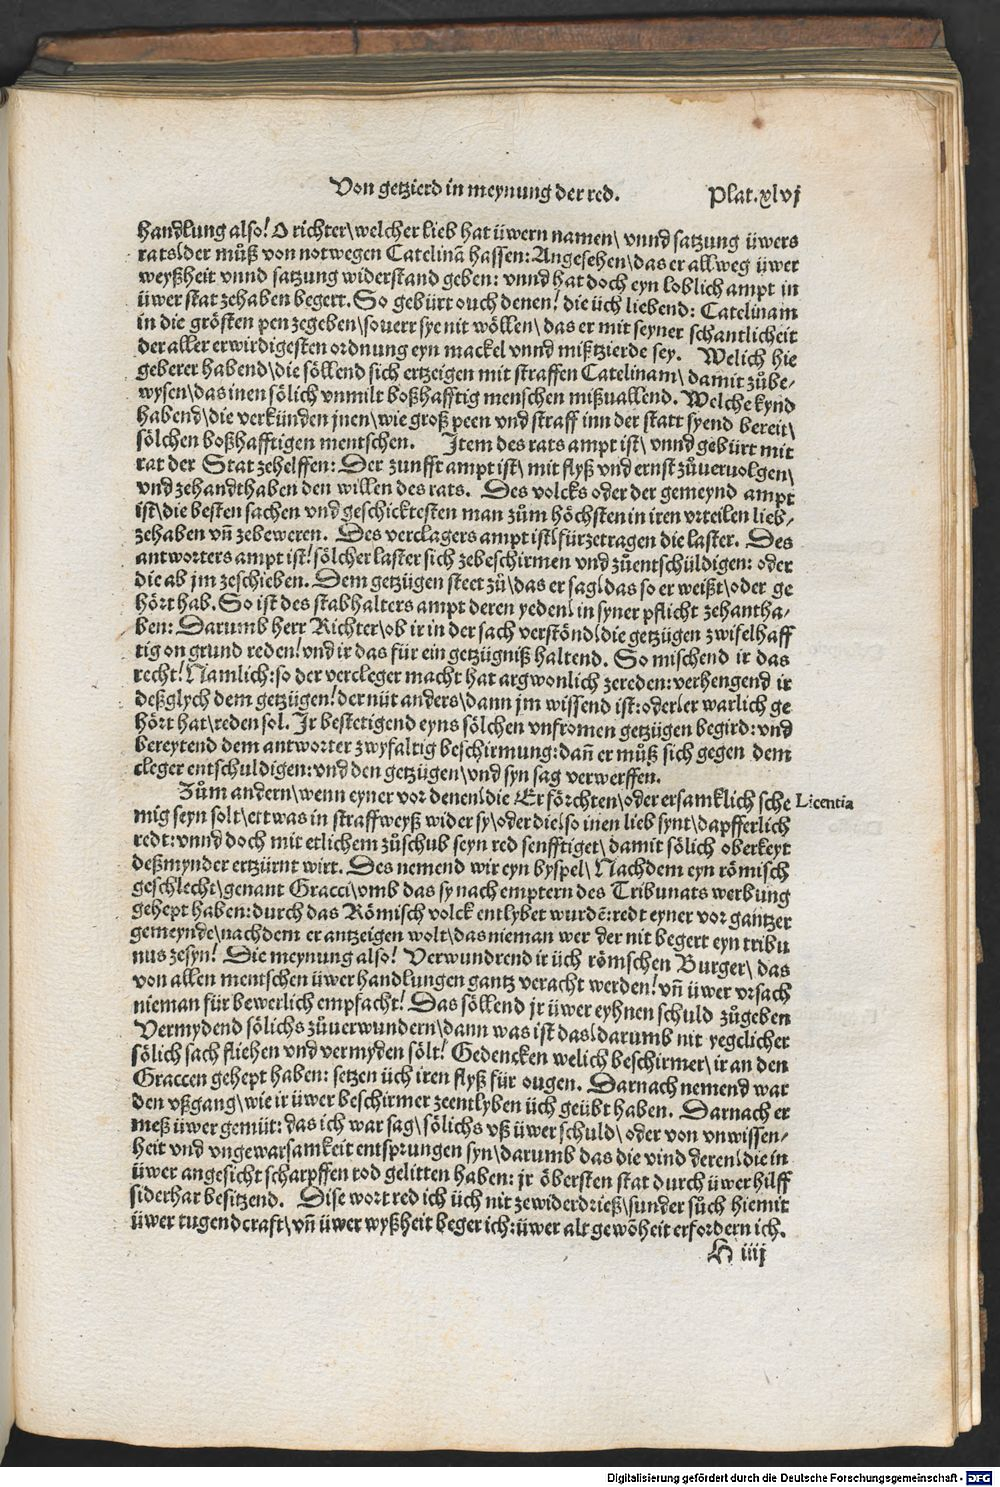 Von getzierd in meynung der red. Plat.xlvj
handlung also! O richter\welcher lieb hat üwern namen\ vnnd satzung üwers
rats\der můß von notwegen Catelinā hassen: Angesehen\das er allweg üwer
weyßheit vnnd satzung widerstand geben: vnnd hat doch eyn loblich ampt in
üwer stat zehaben begert. So gebürt ouch denen! die üch liebend: Catelinam
in die grösten pen zegeben\souerr sye nit wöllen\ das er mit seyner schantlicheit
der aller erwirdigesten ordnung eyn mackel vnnd mißtzierde sey. Welich hie
geberer habend\die söllend sich ertzeigen mit straffen Catelinam\ damit zůbe⸗
wysen\das inen sölich vnmilt boßhafftig menschen mißuallend. Welche kynd
habend\die verkünden jnen\wie groß peen vnd straff inn der statt syend bereit\
sölchen boßhafftigen mentschen. Item des rats ampt ist\ vnnd gebürt mit
rat der Stat zehelffen: Der zunfft ampt ist\ mit flyß vnd ernst zůueruolgen\
vnd zehandthaben den willen des rats. Des volcks oder der gemeynd ampt
ist\die besten sachen vnd geschicktesten man zům höchsten in iren vrteilen lieb⸗
zehaben vñ zebeweren. Des verclagers ampt ist\fürzetragen die laster. Des
antworters ampt ist! sölcher laster sich zebeschirmen vnd zůentschüldigen: oder
die ab jm zeschieben. Dem getzügen steet zů\das er sag\das so er weißt\oder ge
hört hab. So ist des stabhalters ampt deren yeden\in syner pflicht zehantha⸗
ben: Darumb herr Richter\ob ir in der sach verstönd\die getzügen zwifelhaff
tig on grund reden! vnd ir das für ein getzügniß haltend. So mischend ir das
recht! Namlich: so der vercleger macht hat argwonlich zereden: verhengend ir
deßglych dem getzügen! der nüt anders\dann jm wissend ist: oder\er warlich ge
hört hat\reden sol. Ir bestetigend eyns sölchen vnfromen getzügen begird: vnd
bereytend dem antworter zwyfaltig beschirmung: dañ er můß sich gegen dem
cleger entschuldigen: vnd den getzügen\vnd syn sag verwerffen.
Zům andern\wenn eyner vor denen\die Er förchten\oder ersamklich sche
mig seyn solt\ettwas in straffweyß wider sy\oder die\so inen lieb synt\dapfferlich
redt: vnnd doch mit etlichem zůschub seyn red senfftiget\damit sölich oberkeyt
deßmynder ertzürnt wirt. Des nemend wir eyn byspel\ Nachdem eyn römisch
geschlecht\genant Gracci\vmb das sy nach emptern des Tribunats werbung
gehept haben: durch das Römisch volck entlybet wurdē: redt eyner vor gantzer
gemeynde\nachdem er antzeigen wolt\das nieman wer der nit begert eyn tribu
nus zesyn! Die meynung also! Verwundrend ir üch römschen Burger\ das
von allen mentschen üwer handlungen gantz veracht werden! vñ üwer vrsach
nieman für bewerlich empfacht! Das söllend jr üwer eyhnen schuld zůgeben
Vermydend sölichs zůuerwundern\dann was ist das\darumb nit yegclicher
sölich sach fliehen vnd vermyden sölt! Gedencken welich beschirmer\ir an den
Graccen gehept haben: setzen üch iren flyß für ougen. Darnach nemend war
den vßgang\wie ir üwer beschirmer zeentlyben üch geübt haben. Darnach er
meß üwer gemüt: das ich war sag\sölichs vß üwer schuld\ oder von vnwissen⸗
heit vnd vngewarsamkeit entsprungen syn\darumb das die vind deren\die in
üwer angesicht scharpffen tod gelitten haben: jr öbersten stat durch üwer hilff
siderhar besitzend. Dise wort red ich üch nit zewiderdrieß\sunder sůch hiemit
üwer tugend craft\vñ üwer wyßheit beger ich: üwer alt gewöheit erfordern ich.
Licentia
H iiij
Digitalisierung gefördert durch die Deutsche Forschungsgemeinschaft - DFG